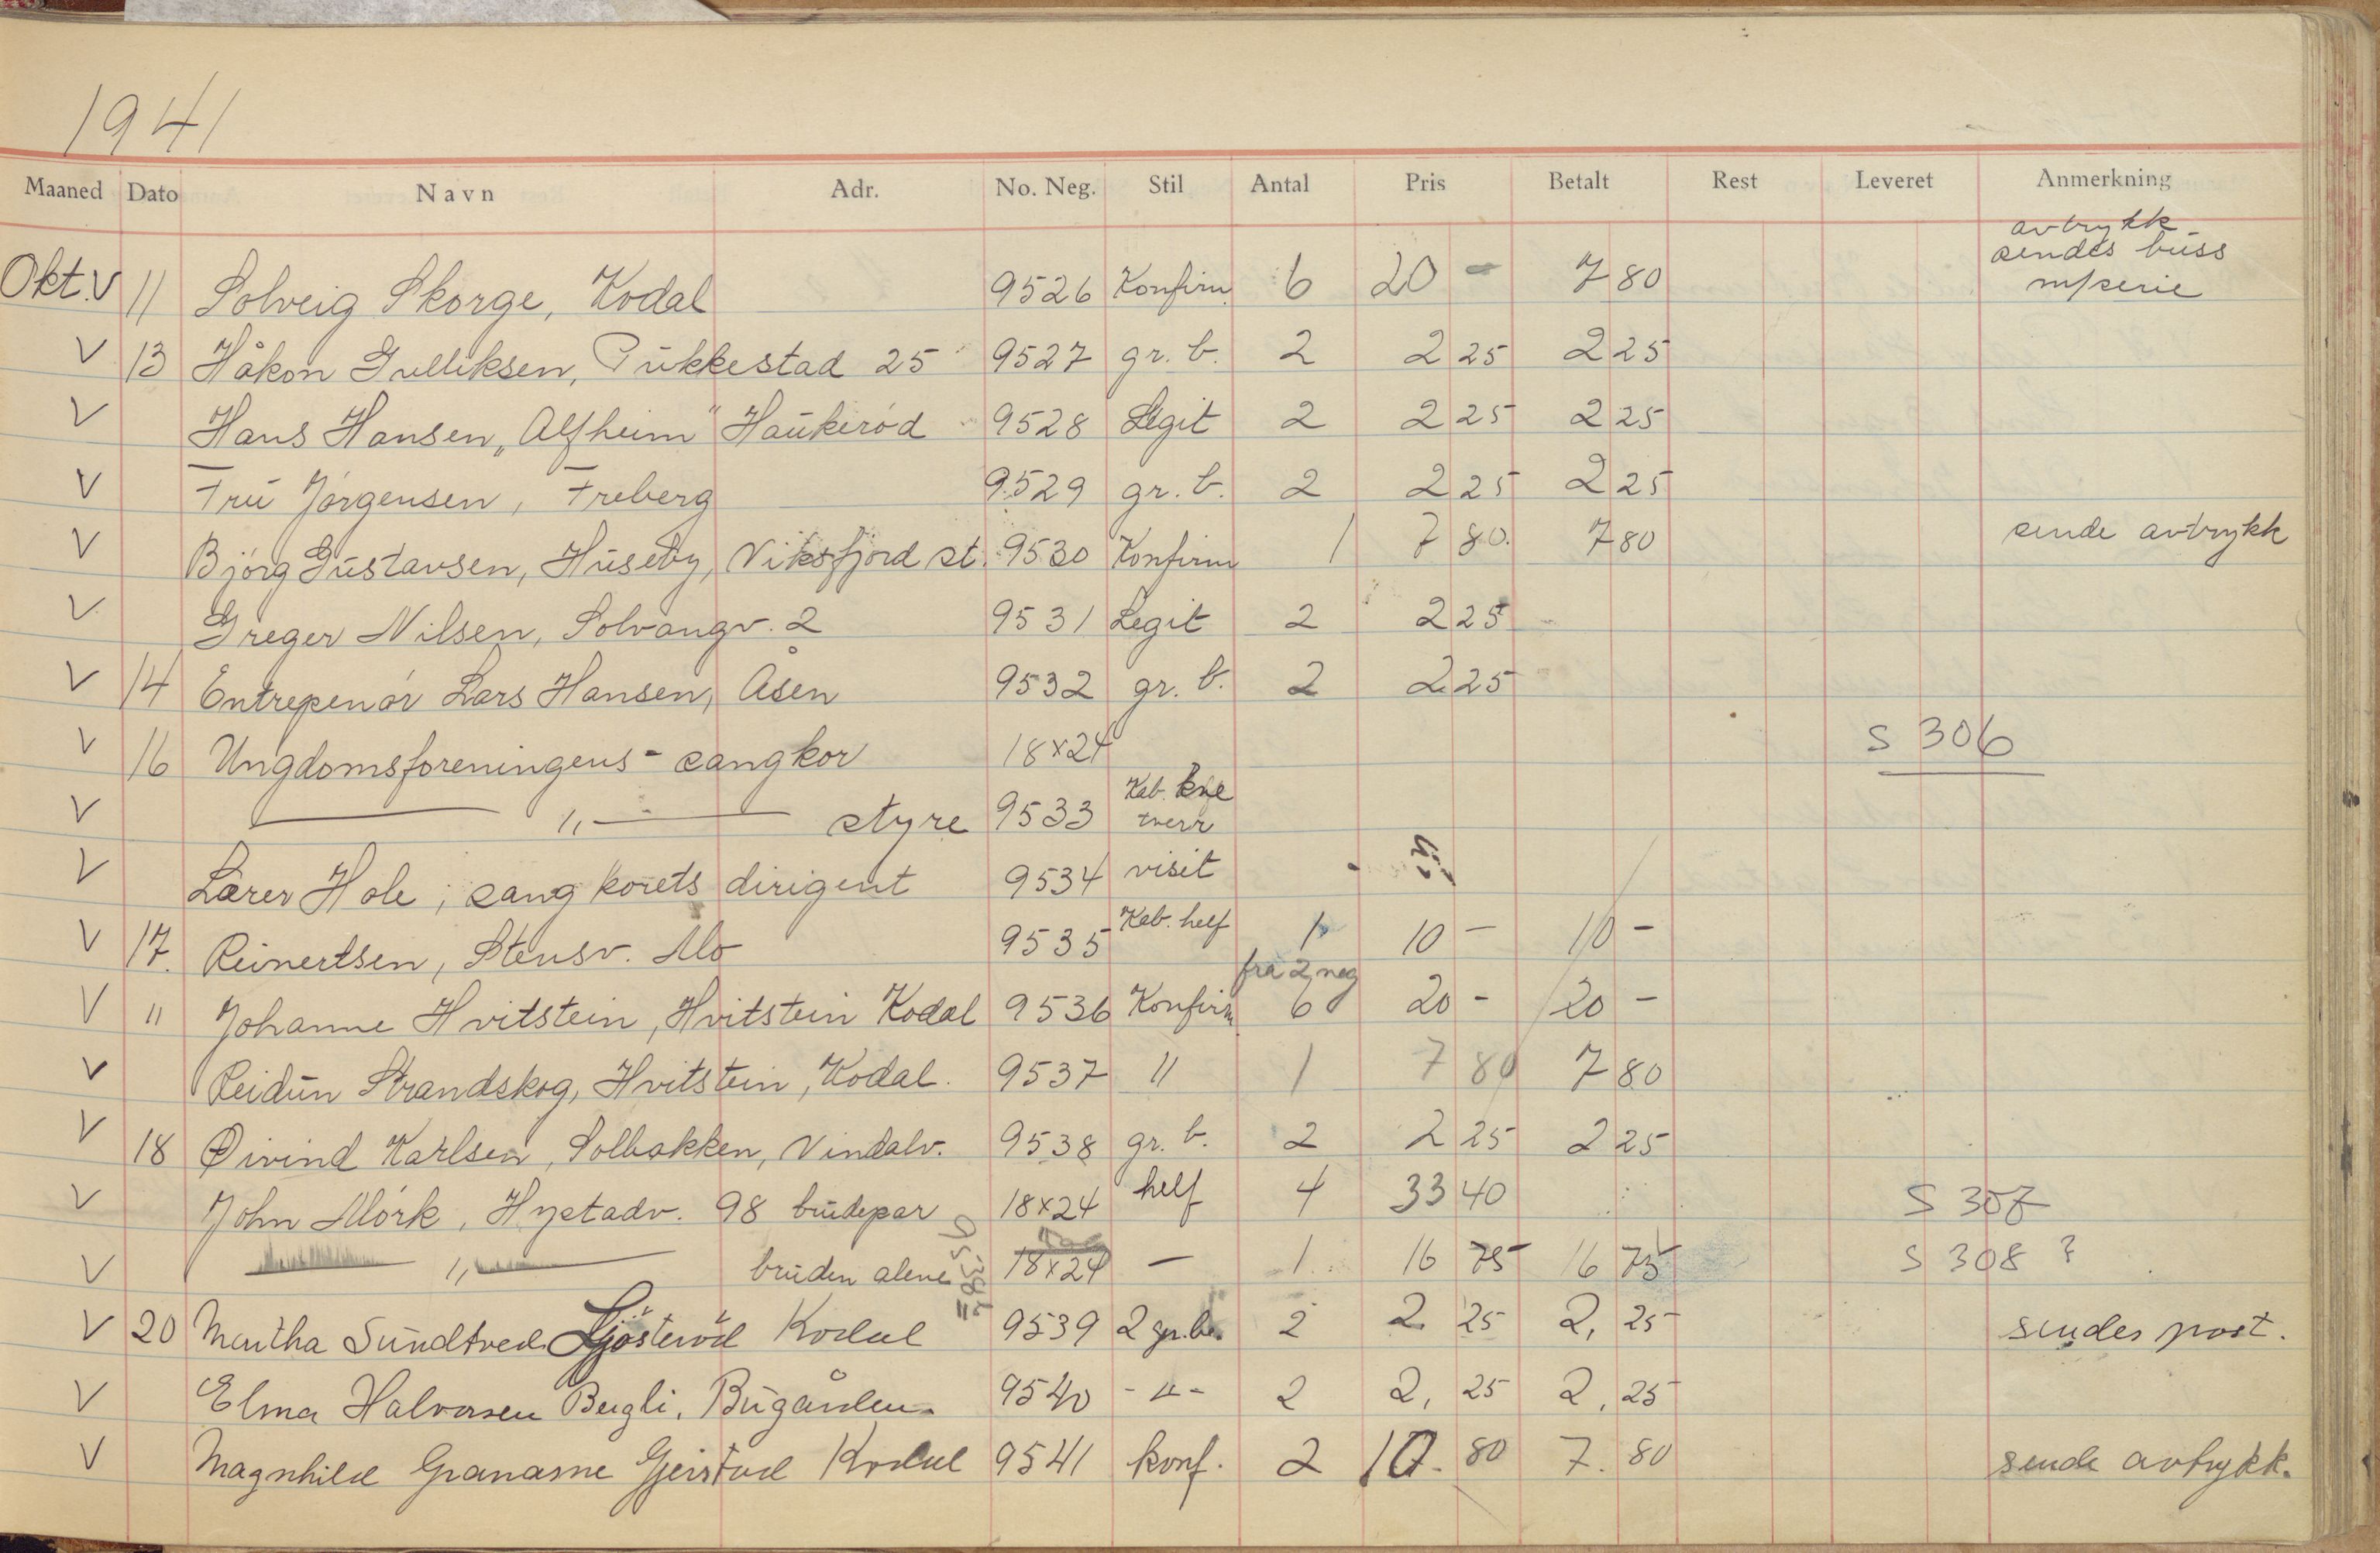 1941
Maaned Dato Navn Adr. No. Neg. Stil Antal Pris Betalt Rest Leveret Anmerkning
avtrykk
sendes buss
m/serie
Okt. V 11 Solveig Skorge, Kodal 9526 Konfirm 6 20 - 7 80
V 13 Håkon Gulliksen, Pukkestad 25 9527 gr. b. 2 2 25 2 25
V Hans Hansen, „Alfheim" Haukerød 9528 Legit 2 2 25 2 25
V Fru Jørgensen, Freberg 9529 gr. b. 2 2 25 2 25
V Bjørg Gustavsen, Huseby, Viksfjord st. 9530 Konfirm 1 7 80. 7 80 sende avtrykk
V Greger Nilsen, Solvangv. 2 9531 Legit 2 2 25
V 14 Entrepenør Lars Hansen, Åsen 9532 gr. b. 2 2 25
V 16 Ungdomsforeningens - sangkor 18x24 S 306
V — " — styre 9533 Kab. kne
tverr
V Lærer Hole, sangkorets dirigent 9534 visit
V 17. Reinertsen, Stensv. Mo 9535 Kab. helf 1 10 - 10 -
fra 2 neg
V " Johanne Hvitstein, Hvitstein Kodal 9536 Konfirm 6 20 - 20 -
V Reidun Strandskog, Hvitstein, Kodal. 9537 " 1 7 80 7 80
V 18 Øivind Karlsen, Solbakken, Vindalv. 9538 gr. b. 2 2 25 2 25
V John Mørk, Hystadv. 98 brudepar 18x24 helf 4 33 40 S 307
V — " — bruden alene 18x24 — 1 16 75 16 75 S 308 ?
V 20 Martha Sundtvedt Ljøsterød Kodal 9539 2 gr.b. 2 2 25 2, 25 sendes post.
V Elma Halvorsen Bugli, Bugården. 9540 - " - 2 2, 25 2, 25
V Magnhild Granasne Gjerstad Kodal 9541 konf. 2 10. 80 7. 80 sende avtrykk.